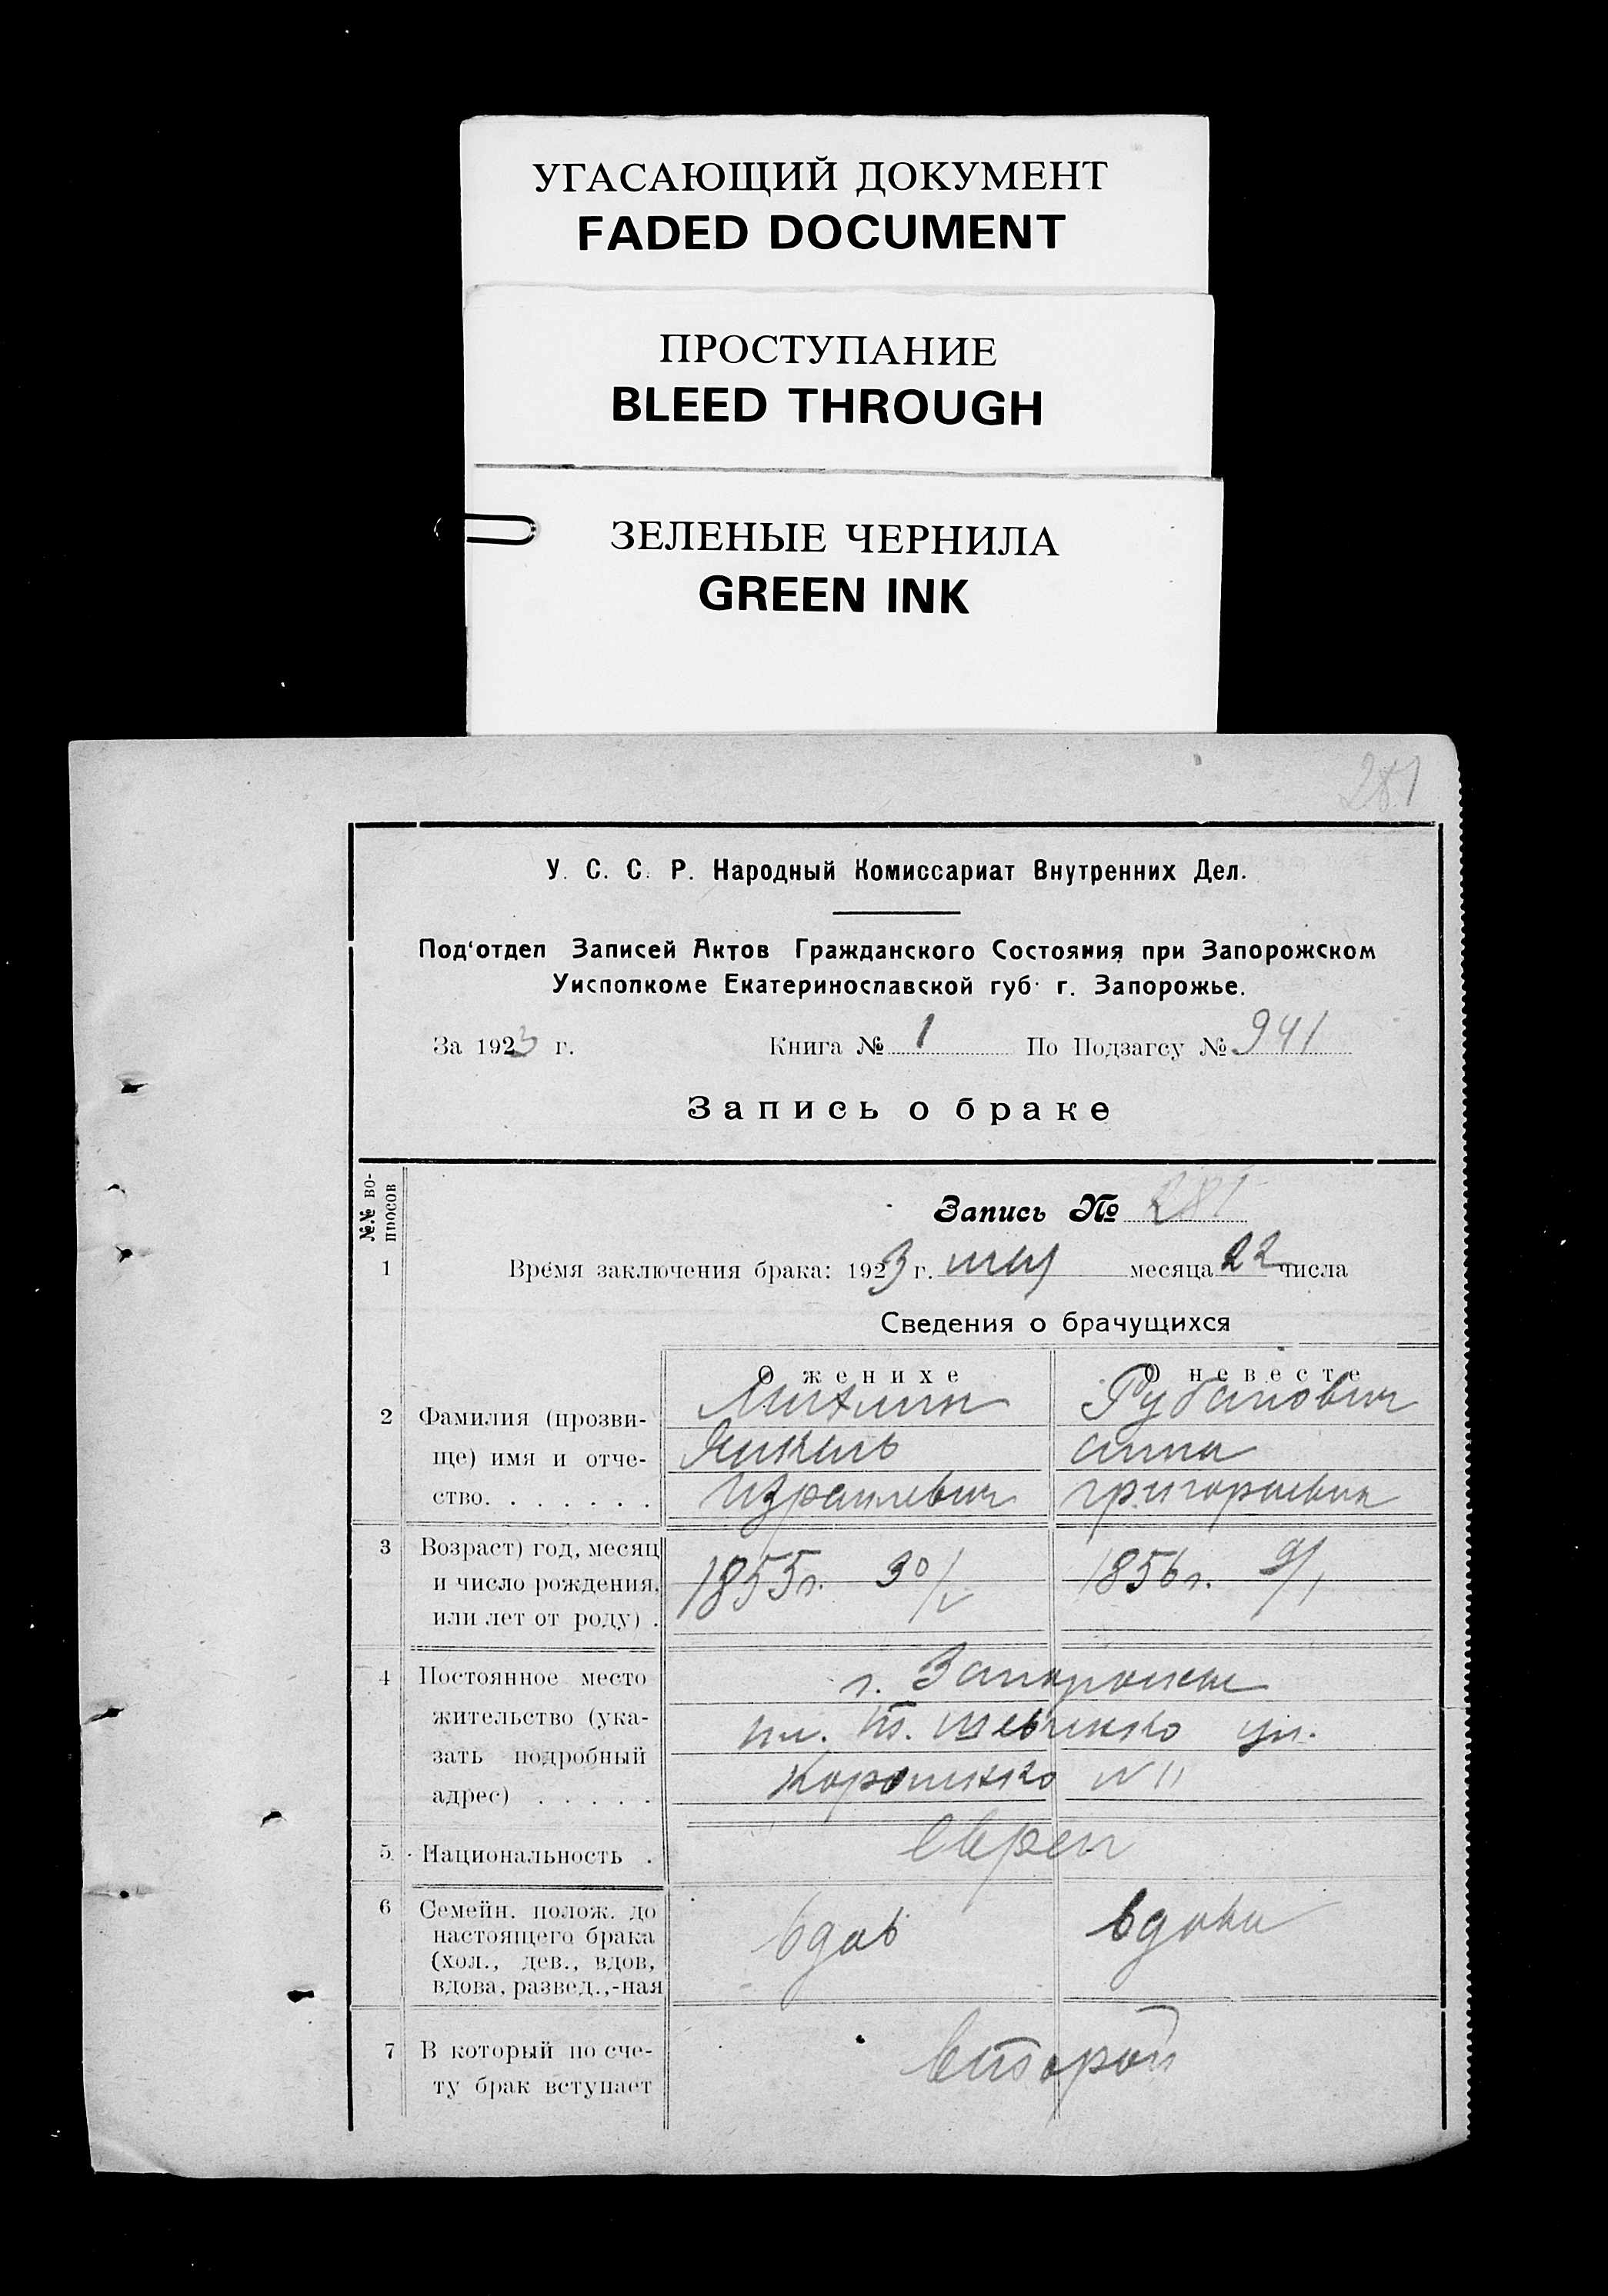 УГАСАЮЩИЙ ДОКУМЕНТ
FADED DOCUMENT
ПРОСТУПАНИЕ
BLEED THROUGH
ЗЕЛЕНЫЕ ЧЕРНИЛА
GREEN INK
281
У. С. С. Р. Народный Комиссариат Внутренних Дел.
Под‘отдел Записей Актов Гражданского Состояния при Запорожском
Уисполкоме Екатеринославской губ. г. Запорожье.
За 1923 г. Книга № 1 По Подзагсу № 941
Запись о браке
№№ вопросов
Запись № 281
1 Время заключения брака: 1923 г. мая месяца 22 числа
Сведения о брачущихся
О женихе О невесте
2 Фамилия (прозви- Михлин Рубанович
ще) имя и отче- Янкель Анна
ство. . . . . . . Израилевич Григорьевна
3 Возраст) год, месяц
и число рождения, 1855 г. 30/V 1856 г. 9/I
или лет от роду) .
4 Постоянное место г. Запорожье
жительство (ука- пл. Т. Шевченко ул.
зать подробный Короленко N 11
адрес) . . . . .
5. Национальность . евреи
6 Семейн. полож. до
настоящего брака вдов вдова
(хол., дев., вдов,
вдова, развед.,-ная
7 В который по сче- второй
ту брак вступает